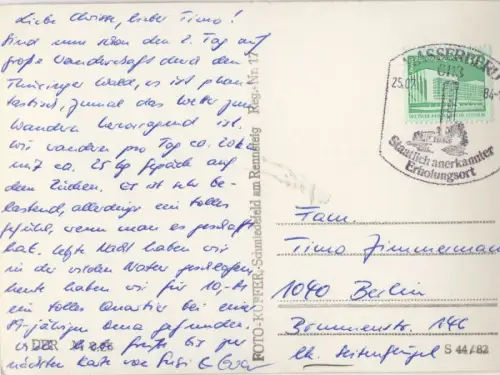 Liebe Christe, lieber Timo!
Sind nun schon den 2. Tag auf
großer Wanderschaft durch den
Thüringer Wald, es ist phan-
tastisch, zumal das Wetter zum
Wandern hervorragend ist.
Wir wandern pro Tag ca. 20 km
mit ca. 25 kg Gepäck auf
dem Rücken. Es ist sehr be-
lastend, allerdings ein tolles
Gefühl, wenn man es geschafft
hat. Letzte Nacht haben wir
in der wilden Natur geschlafen,
heute haben wir für 10,-M
ein tolles Quartier bei einer
-jährigen Oma gefunden.
bis zur
nächsten Karte von
DDR
FOTO-KUPFER-Schmiedefeld am Rennsteig Reg.-Nr. 17
WASSERBERG
6113
25.
84-
Staatlich anerkannter
Erholungsort
Fam.
Timo Zimmermann
1040 Berlin
146
lk. Seitenflügel
S 44/82